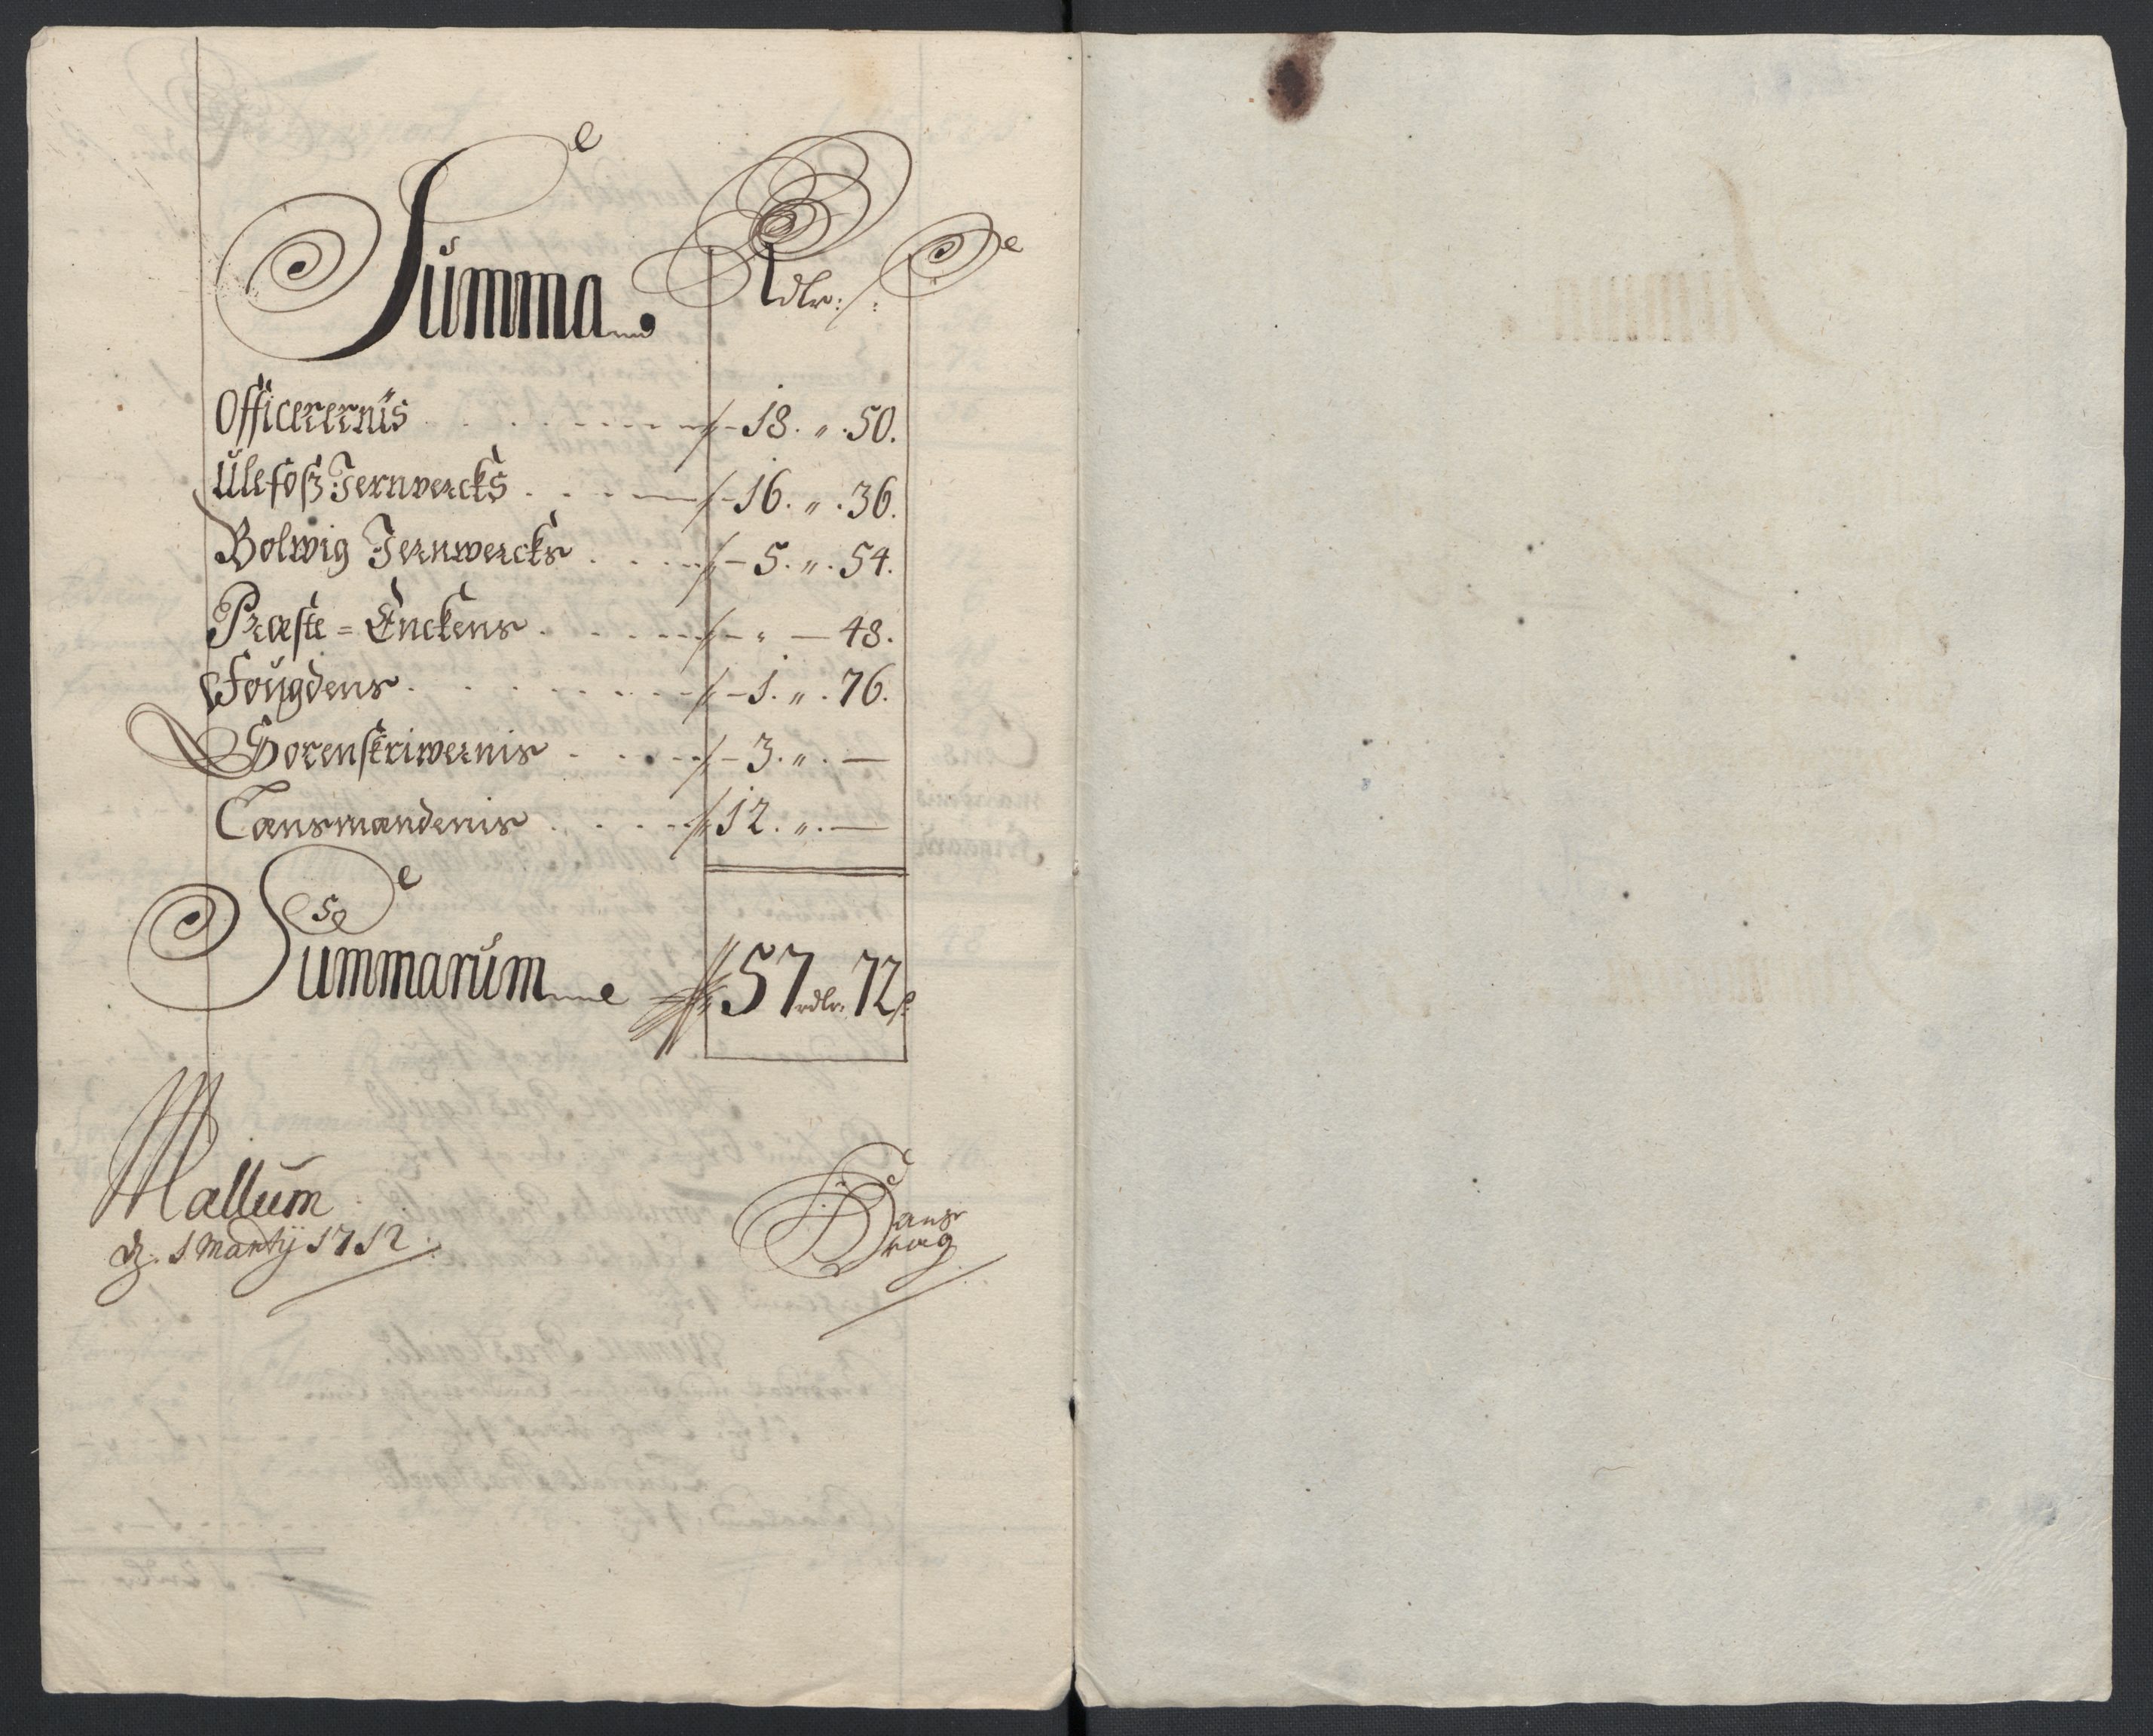 Summa Rdlr: ß
Officerernis 18 " 50.
Ülefoß Jernvercks 16. " 36.
Bolwig Jernwercks 5. " 54.
Præste=Enckens " — 48.
Fougdens 1. " 76.
Sorenskriwernis 3. " —
Lænsmandenis 12. " —
Summarum 57 rdlr. 72 ß
Mallum
d. 1 Martij 1712.
Hans
Brag